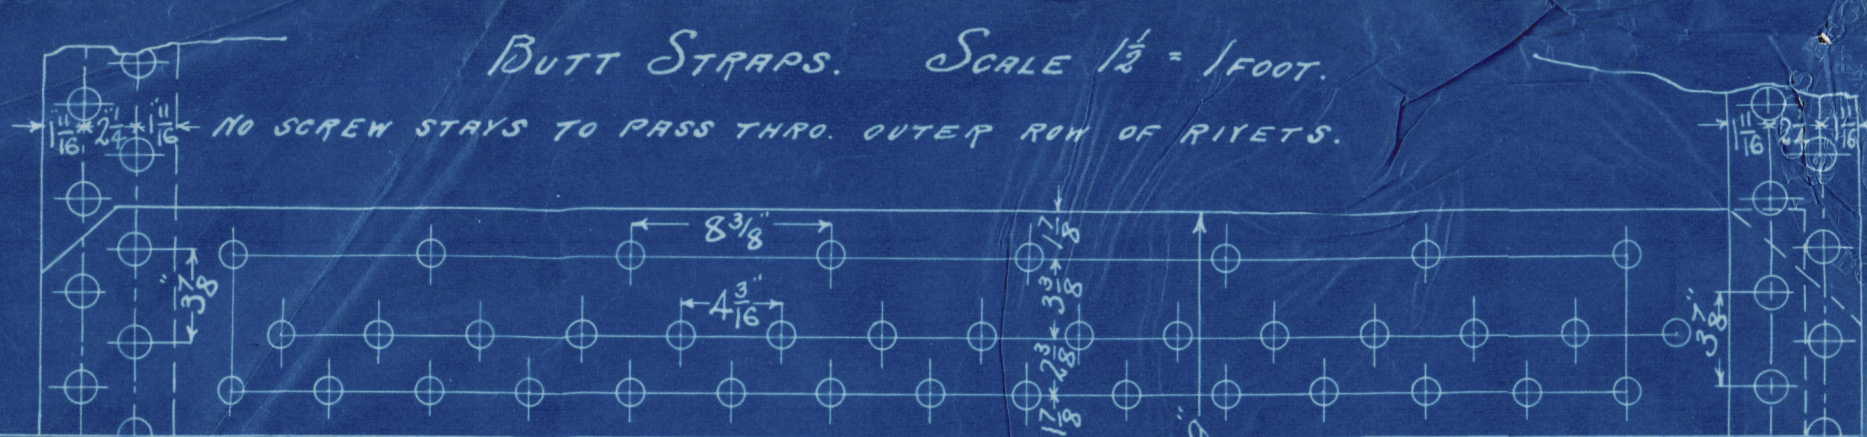 BUTT STRAPS. SCALE 1 1/2" = 1 FOOT.
1 11/16" 2 1/4" 1 11/16" NO SCREW STAYS TO PASS THRO. OUTER ROW OF RIVETS. 1 11/16 2 1/4 1 11/16
8 3/8" 1 7/8
3 7/8" 4 3/16" 3 3/8 3 7/8"
2 3/8
1 7/8